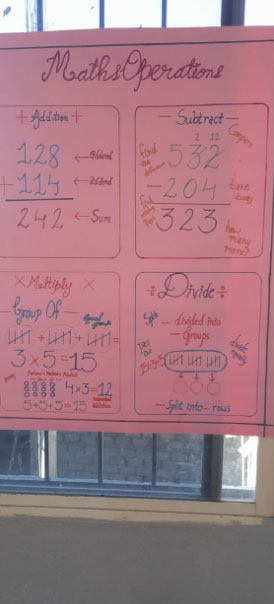 Maths Operations
+ Addition +
128 ← Addend
+ 114 ← Addend
242 ← Sum
— Subtract —
Compare
2 12
find the difference
532
- 204
take away
323
how many more?
× Multiply ×
Group Of —
equal groups
+ + =
3 × 5 = 15
4 × 3 = 12
5 + 5 + 5 = 15
repeated addition
÷ Divide ÷
Split — divided into
— Groups
15÷3=5
— Split into — rows